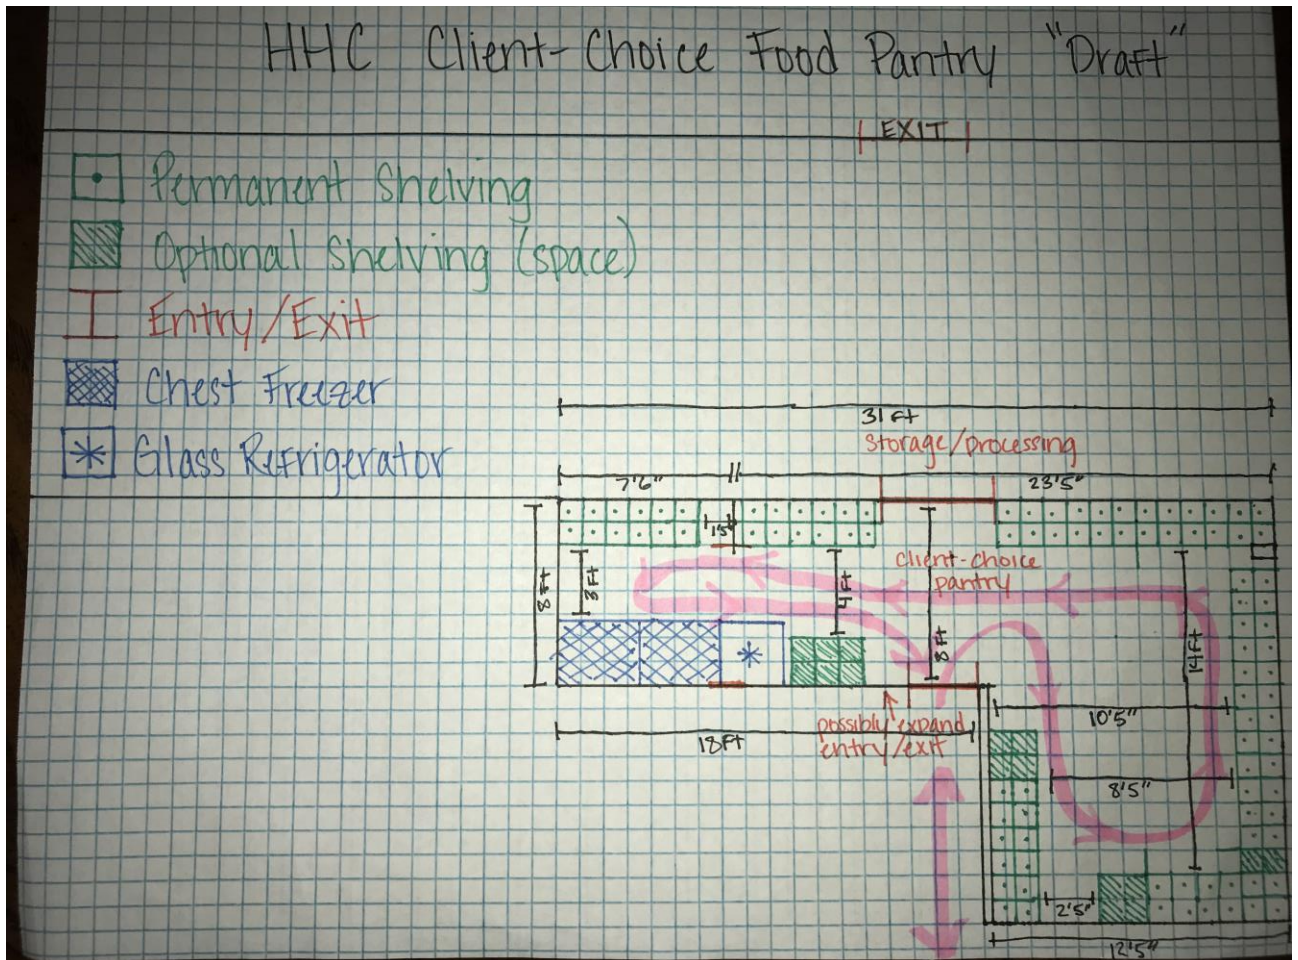 HHC Client-Choice Food Pantry "Draft"
EXIT
Permanent Shelving
Optional Shelving (space)
Entry/Exit
Chest Freezer
Glass Refrigerator
31 Ft
Storage/processing
7'6"
23'5"
1'5"
8 Ft
3 Ft
4 Ft
client-choice
pantry
8 Ft
14 Ft
10'5"
possibly expand
entry/exit
18 Ft
8'5"
2'5"
12'5"